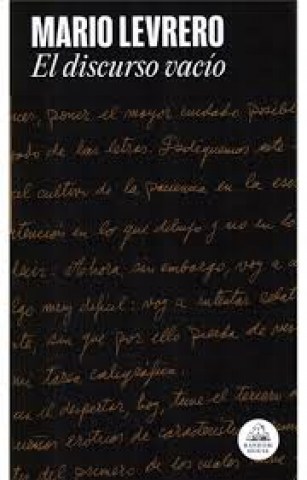 MARIO LEVRERO
El discurso vacío
cer, poner el mayor cuidado posible
de las letras. Dediquemos este
al cultivo de la paciencia en la
atención en lo que dibujo y no en lo
decir. Ahora, sin embargo, voy a
algo muy difícil: voy a intentar
sin que por ello pierda de
mi tarea caligráfica.
el despertar, hoy, tuve el tercero
sueños eróticos de
del primero de los cuales
RANDOM
HOUSE